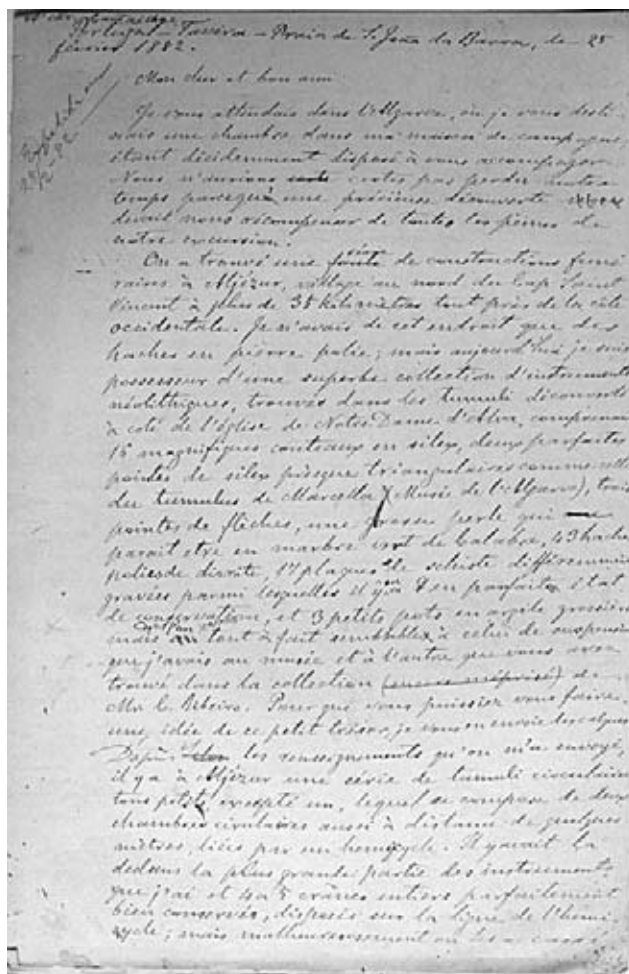 Portugal – Tavira – Praia de S. João da Barra, le 25
février 1882.
Mon cher et bon ami
Je vous attendais dans l'Algarve, où je vous desti-
nais une chambre dans ma maison de campagne,
étant décidemment disposé à vous accompagner.
Nous n'aurions certes pas perdu notre
temps parcequ'une précieuse découverte
devait nous récompenser de toutes les peines de
notre excursion.
On a trouvé une série de constructions funé
raires à Aljézur, village au nord du Cap Saint
Vincent à plus de 38 kilomètres tout près de la côte
occidentale. Je n'avais de cet endroit que des
haches en pierre polie; mais aujourd'hui je suis
possesseur d'une superbe collection d'instruments
néolithiques, trouvés dans les tumuli découverts
à coté de l'église de Notre Dame d'Alva, comprenant
16 magnifiques couteaux en silex, deux parfaites
pointes de silex presque triangulaires comme celles
du tumulus de Marcella (Musée de l'Algarve), trois
pointes de flêches, une grosse perle qui
parait etre en marbre vert de Calabre, 43 haches
polies de diorite, 17 plaques de schiste différemment
gravées parmi lesquelles il y en a 8 en parfaite état
de conservation, et 3 petits pots en argile grossière
mais tout à fait semblables à celui de suspension
que j'avais au musée et à l'autre que vous avez
trouvé dans la collection de
Mr C. Ribeiro. Pour que vous puissiez vous faire
une idée de ce petit trésor, je vous en envoie des calques
D'après les renseignements qu'on m'a envoyé,
il y a à Aljézur une série de tumuli circulaires
tous petits, excepté un, lequel se compose de deux
chambres circulaires aussi à distance de quelques
mètres, liées par un hemycycle. Il y avait là
dedans la plus grande partie des instruments
que j'ai et 4 a 5 crânes entiers parfaitement
bien conservés, disposés sur la ligne de l'hemi
cycle; mais malheureusement on les a cassé